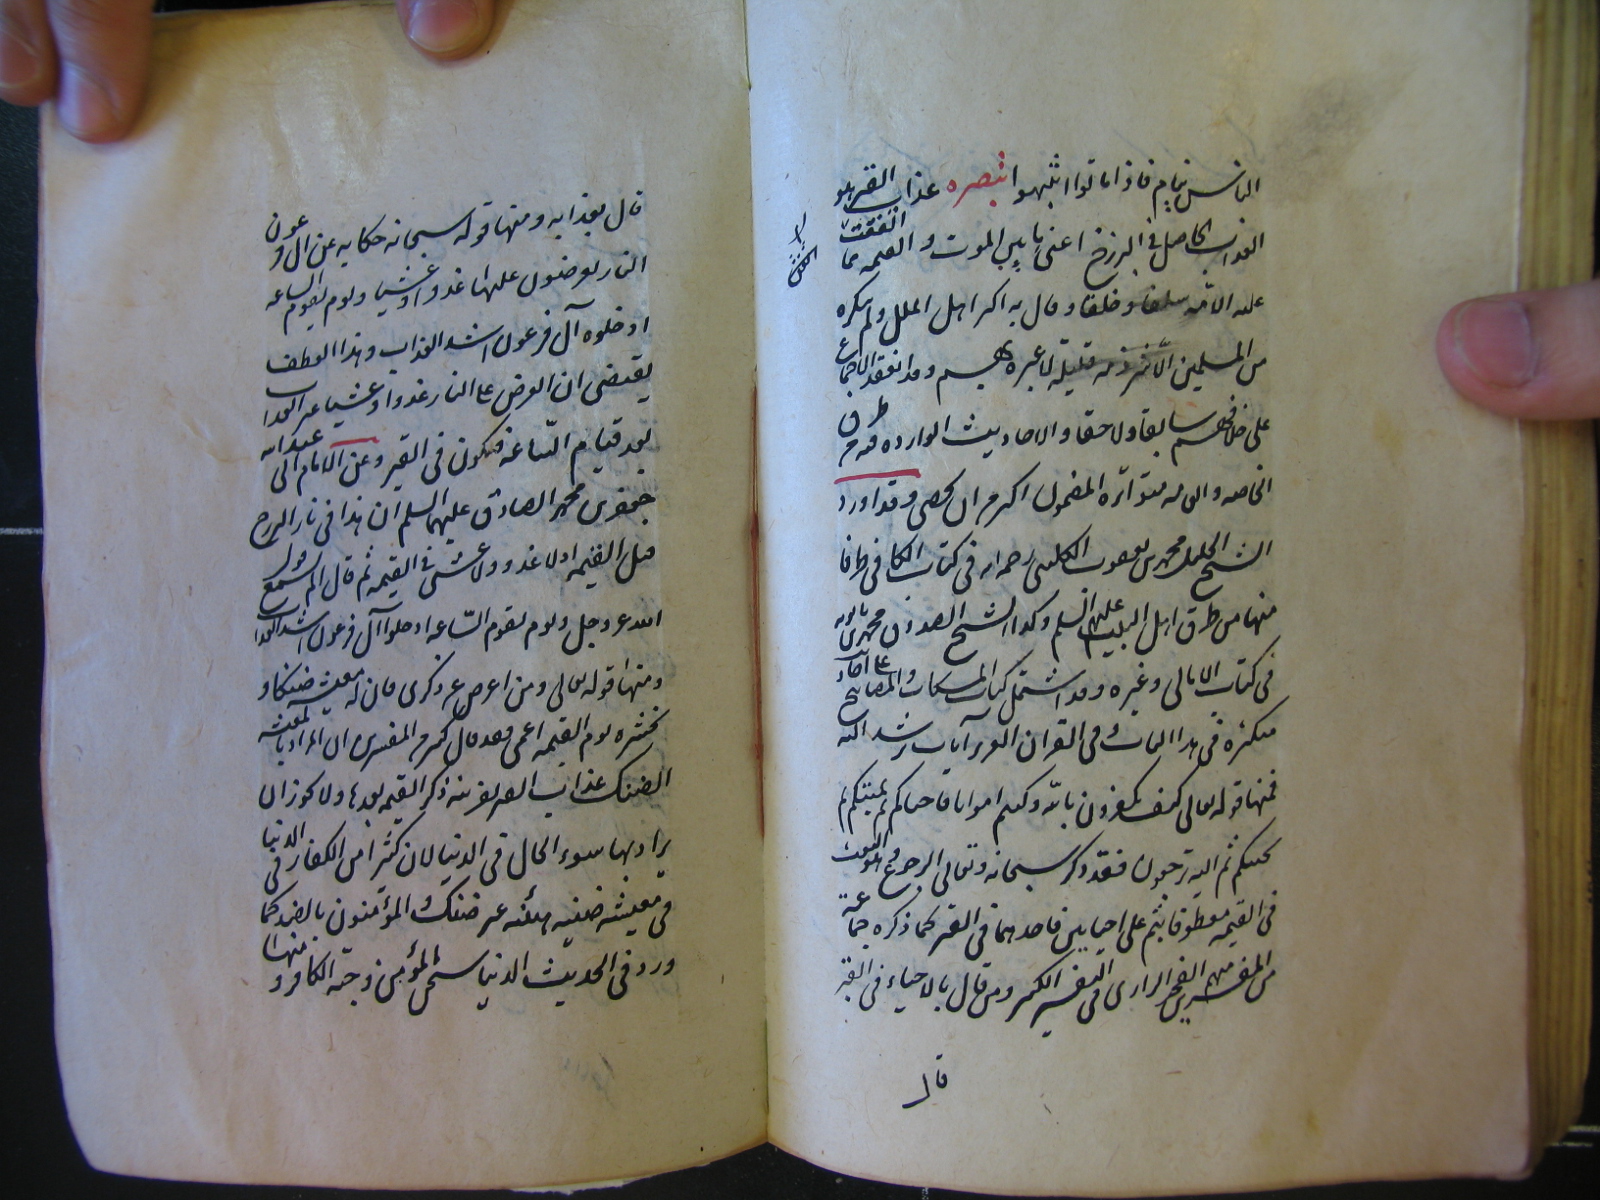 الناس نيام فاذا ماتوا انتبهوا تبصره عذاب القبر هو
العذاب الحاصل فى البرزخ اعنى ما بين الموت والقيمه مما اتفقت
عليه الامّه سلفا وخلفا وقال به اكثر اهل الملل ولم ينكره
من المسلمين الا شرذمه قليله لا عبره بهم وقد انعقد الاجماع
على خلافهم سابقا ولاحقا والاحاديث الوارده فيه من طرق
الخاصه والعامه متواتره المضمون اكثر من ان يحصى وقد اورد
الشيخ الجليل محمد بن يعقوب الكلينى رحمه الله فى كتاب الكافى طرفا
منها من طرق اهل البيت عليهم السلم وكذا الشيخ الصدوق محمد بن بابويه
فى كتاب الامالى وغيره وقد اشتمل كتاب المشكات والمصابيح على احاديث
متكثره فى هذا الباب وفى القران العزيز آيات ترشد اليه
فمنها قوله تعالى كيف تكفرون بالله وكنتم امواتا فاحياكم ثم يميتكم ثم
يحييكم ثم اليه ترجعون فقد ذكر سبحانه وتعالى الرجوع وهو البعث
فى القيمه معطوفا بثم على احيايين فاحدهما فى القبر كما ذكره جماعة
من المفسرين منهم الفخر الرازى فى التفسير الكبير ومن قال بالاحياء فى القبر
قال
قال بعذابه ومنها قوله سبحانه حكايه عن ال فرعون
النار يعرضون عليها غدوا وعشيا ويوم تقوم الساعه
ادخلوه آل فرعون اشد العذاب وهذا العطف
يقتضى ان العرض على النار غدوا وعشيا غير العذاب
بعد قيام السّاعة فيكون فى القبر وعن الامام ابى عبد الله
جعفر بن محمد الصادق عليهما السلم ان هذا فى نار البرزخ
قبل القيمه اذ لا غدو ولا عشى فى القيمه ثم قال الم تسمع قول
الله عز وجل ويوم تقوم السّاعه ادخلوا آل فرعون اشد العذاب
ومنها قوله تعالى ومن اعرض عن ذكرى فان له معيشه ضنكا و
نحشره يوم القيمه اعمى فقد قال كثير من المفسرين ان المراد بالمعيشه
الضنك عذاب القبر بقرينه ذكر القيمه بعدها ولا يجوز ان
يراد بها سوء الحال فى الدنيا لان كثيرا من الكفار فى الدنيا
فى معيشه هنيئه غير ضنك والمؤمنون بالضد كما
ورد فى الحديث الدنيا سجن المؤمن وجنّة الكافر و منها